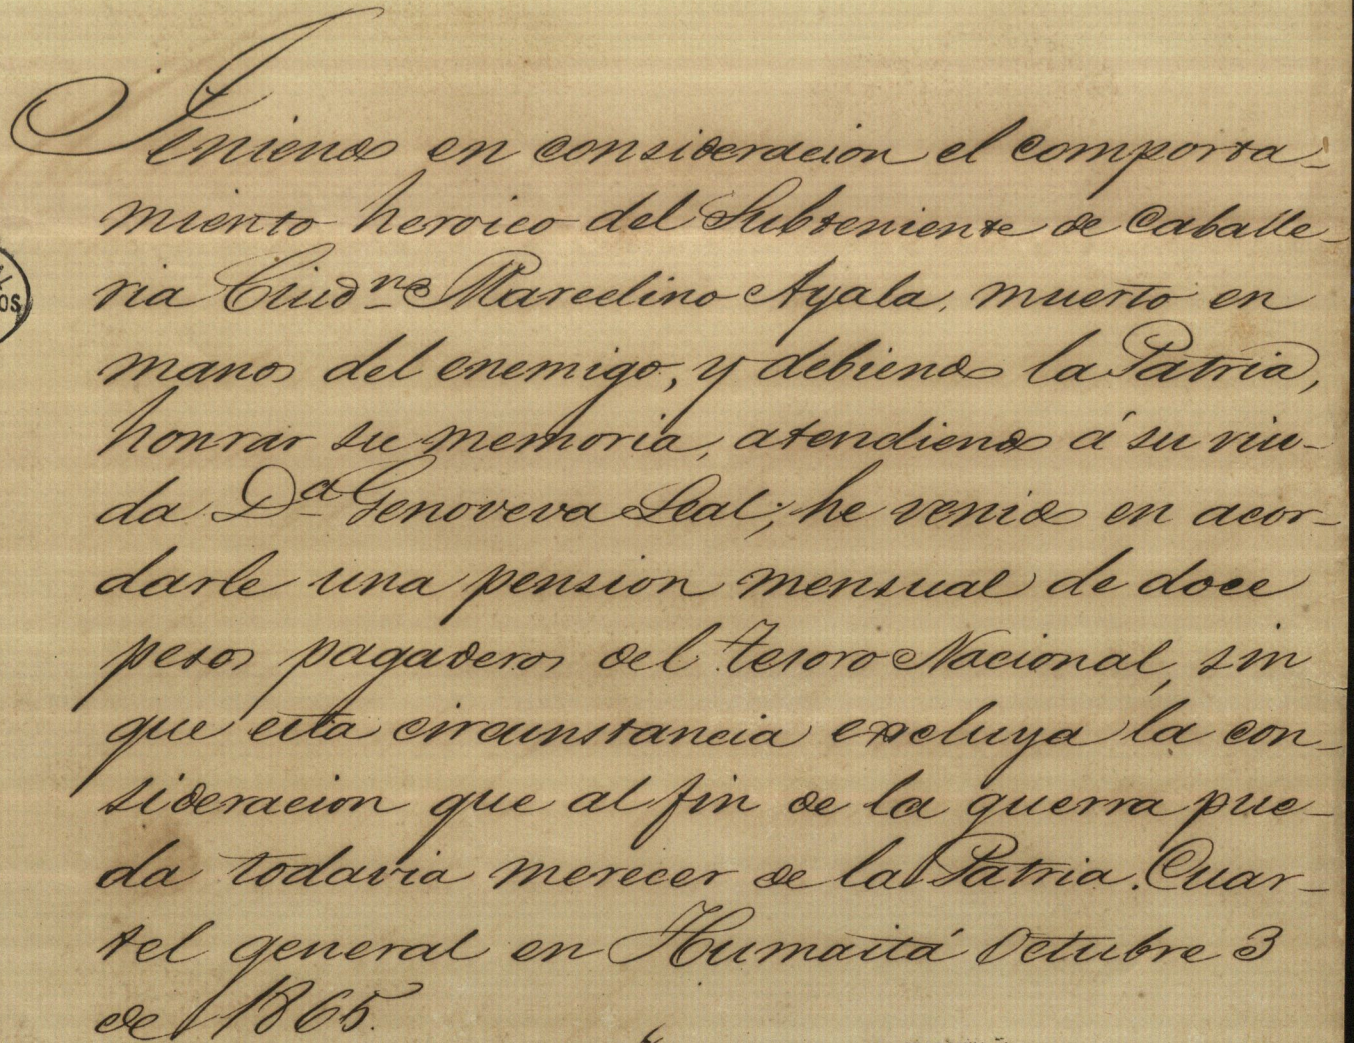 Teniendo en consideracion el comporta-
miento heroico del Subteniente de Caballe-
ria Ciudno Marcelino Ayala, muerto en
manos del enemigo, y debiendo la Patria,
honrar su memoria, atendiendo á su viu-
da Da Genoveva Leal; he venido en acor-
darle una pension mensual de doce
pesos pagaderos del Tesoro Nacional, sin
que esta circunstancia excluya la con-
sideracion que al fin de la guerra pue-
da todavia merecer de la Patria. Cuar-
tel general en Humaitá Octubre 3
de 1865.